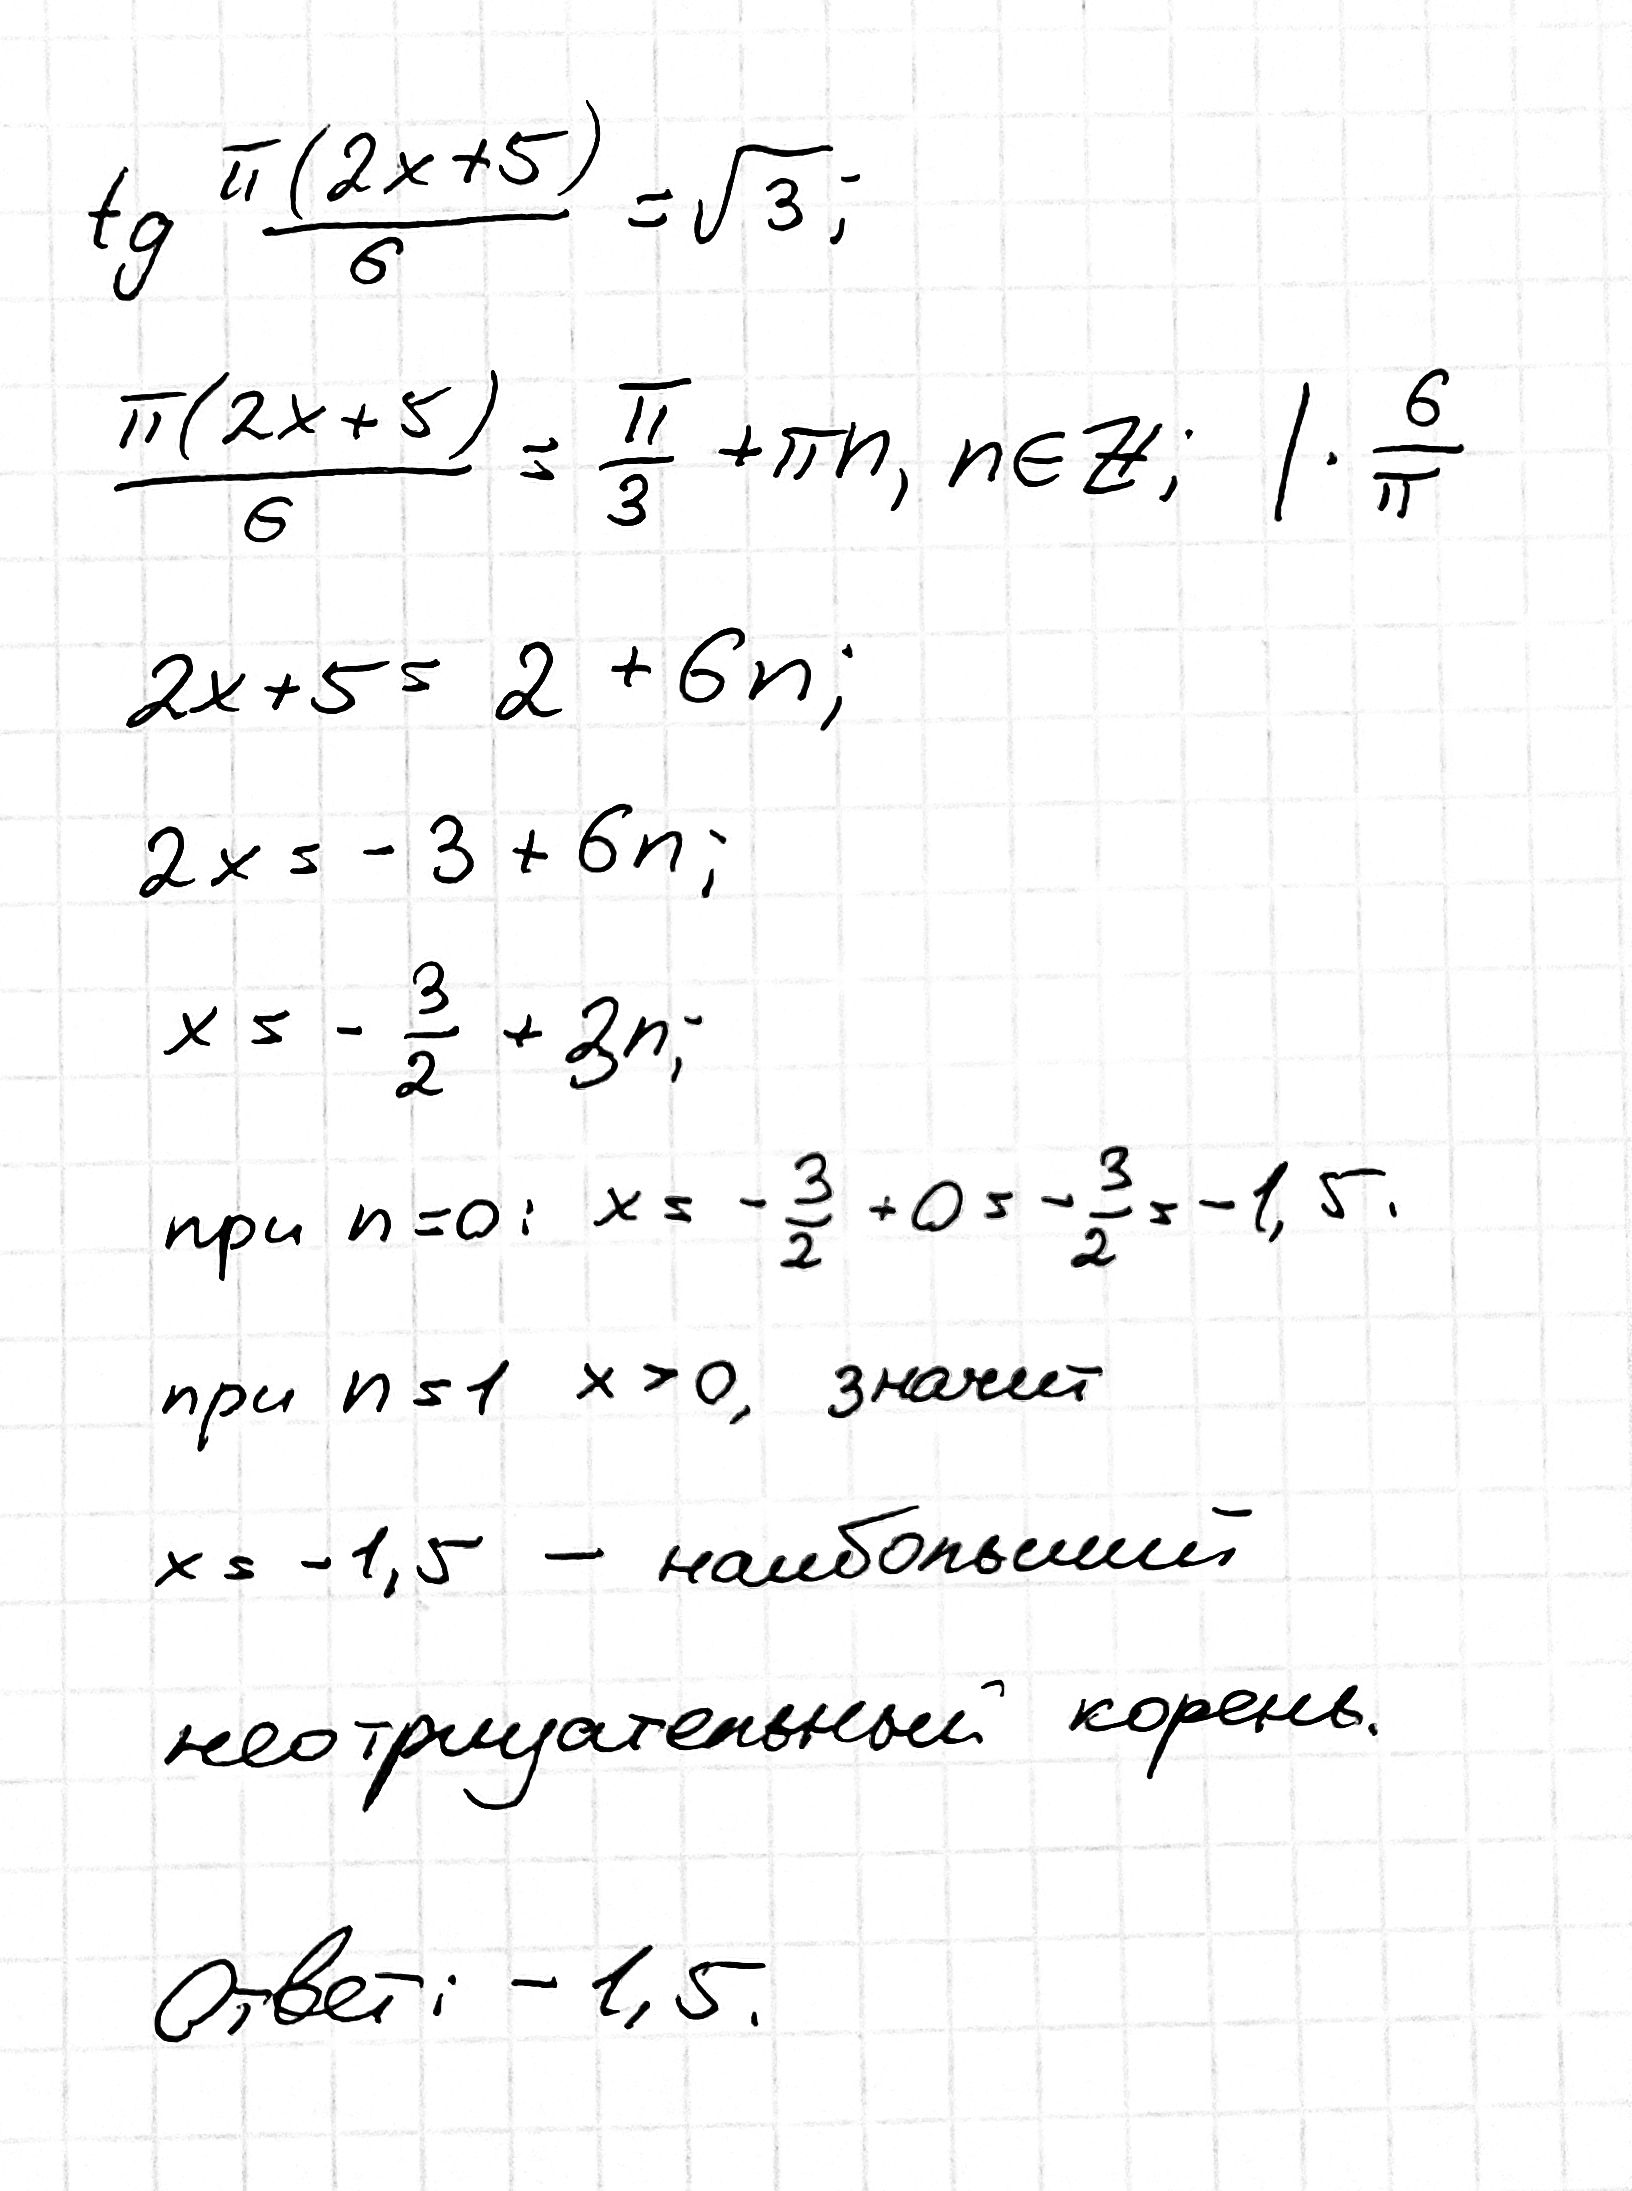 tg π(2x+5)/6 = √3;
π(2x+5)/6 = π/3 + πn, n∈Z; | · 6/π
2x+5 = 2 + 6n;
2x = -3 + 6n;
x = - 3/2 + 3n;
при n=0: x = - 3/2 + 0 = - 3/2 = -1,5.
при n=1 x>0, значит
x = -1,5 — наибольший
неотрицательный корень.
Ответ: -1,5.